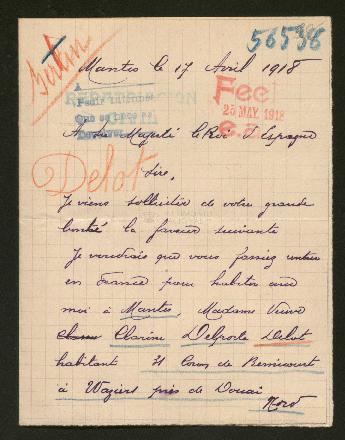 56596
Berlin
Mantes le 17 Avril 1918
Fec
25 MAY. 1918
A Sa Majesté le Roi d'Espagne
Delot
Sire,
Je viens solliciter de votre grande
bonté la faveur suivante
Je voudrais que vous fassiez rentrer
en France pour habiter avec
moi à Mantes, Madame Veuve
Clarine Delporte Delot
habitant 21 de
à Waziers près de Douai
Nord